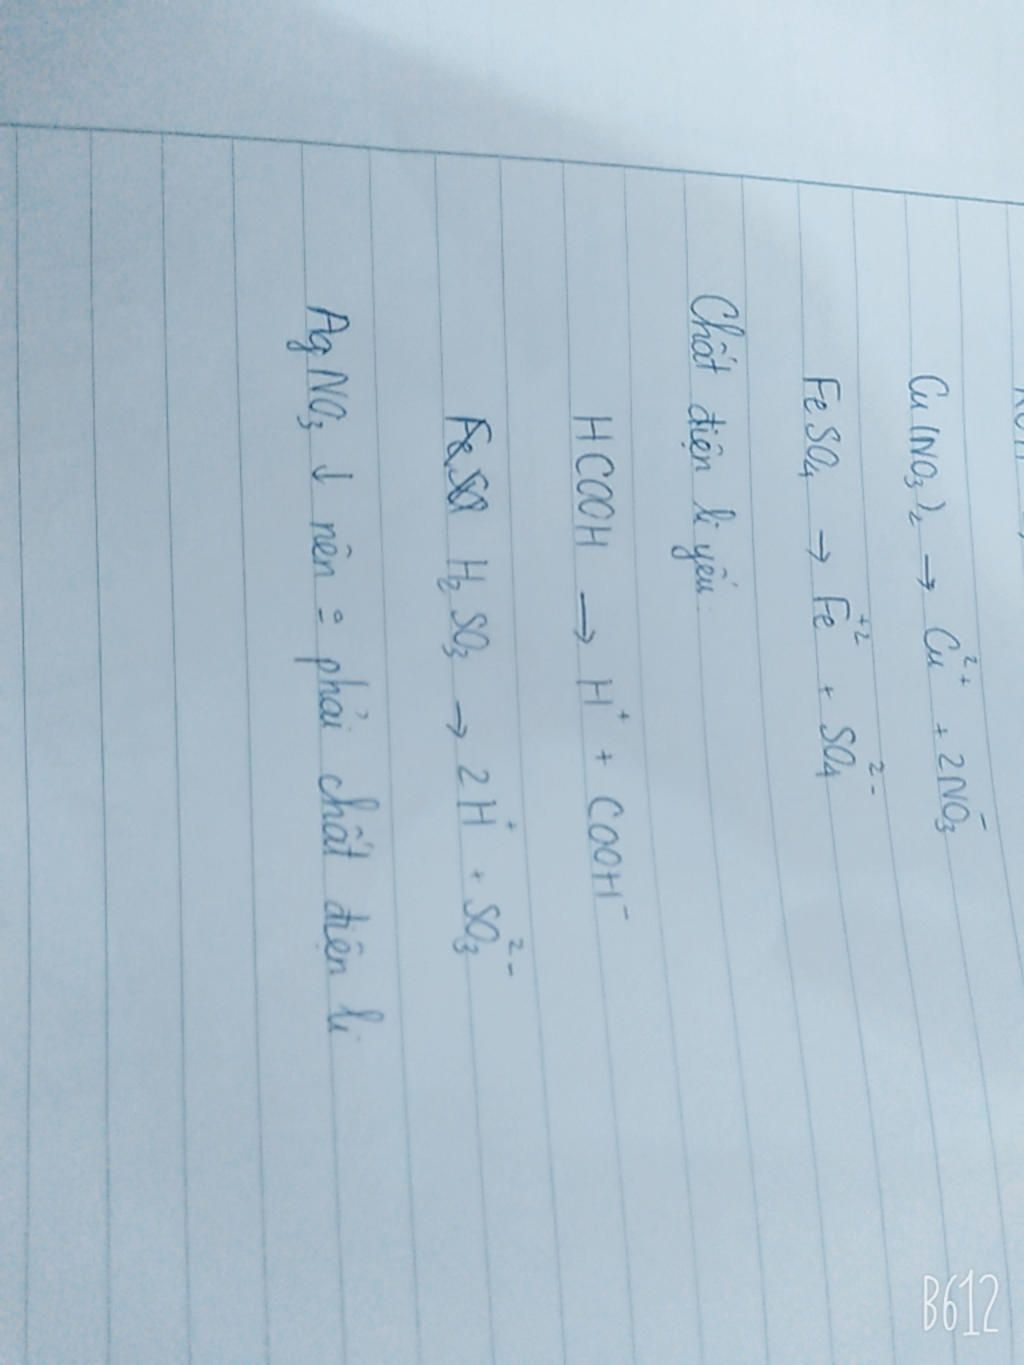 Cu(NO₃)₂ → Cu²⁺ + 2NO₃⁻
FeSO₄ → Fe⁺² + SO₄²⁻
Chất điện li yếu:
HCOOH → H⁺ + COOH⁻
H₂SO₃ → 2H⁺ + SO₃²⁻
AgNO₃ ↓ nên = phải chất điện li
B612